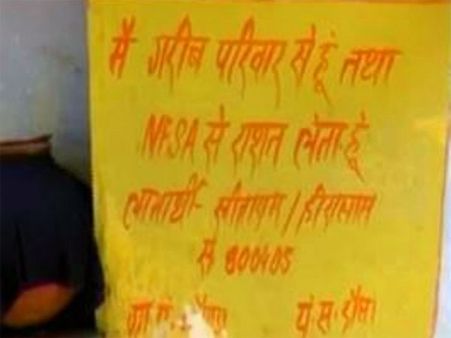 मैं गरीब परिवार से हूं तथा
NFSA से राशन लेता हूं
लाभार्थी- सीताराम / हीरालाल
सं 800405
ग्रा. पं. पं. स. दौसा